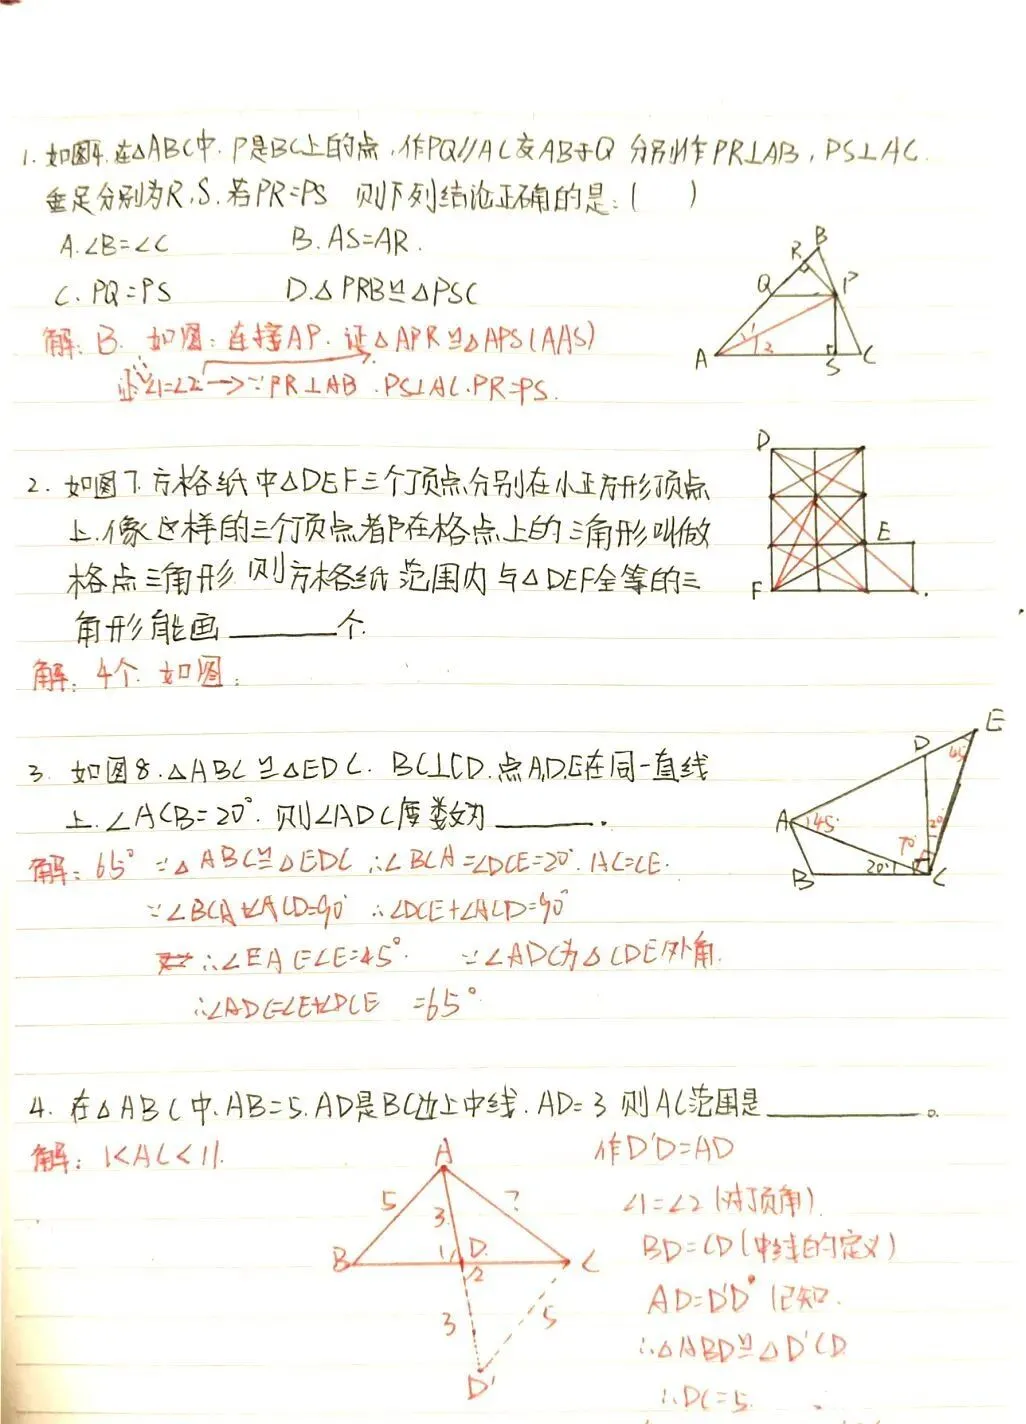 1. 如图4.在△ABC中.P是BC上的点,作PQ//AC交AB于Q 分别作PR⊥AB,PS⊥AC.
垂足分别为R,S.若PR=PS 则下列结论正确的是:( )
A.∠B=∠C B.AS=AR.
C.PQ=PS D.△PRB≌△PSC
解:B. 如图:连接AP.证△APR≌△APS(AAS)
证∠1=∠2→∵PR⊥AB.PS⊥AC.PR=PS.
B
R
Q
P
1
2
A
S
C
2. 如图7.方格纸中△DEF三个顶点分别在小正方形顶点
上.像这样的三个顶点都在格点上的三角形叫做
格点三角形 则方格纸范围内与△DEF全等的三
角形能画______个.
解:4个.如图:
D
E
F
3. 如图8.△ABC≌△EDC. BC⊥CD.点A,D,E在同一直线
上.∠ACB=20°.则∠ADC度数为______.
解:65° ∵△ABC≌△EDC ∴∠BCA=∠DCE=20°.AC=CE.
∵∠BCA+∠ACD=90° ∴∠DCE+∠ACD=90°
∴∠EAC=∠E=45°. ∵∠ADC为△CDE外角.
∴∠ADC=∠E+∠DCE =65°
E
45°
D
A
45°
20°
70°
20°
B
C
4. 在△ABC中.AB=5.AD是BC边上中线.AD=3 则AC范围是______。
解:1<AC<11.
A
5
3
?
B
1
D
2
C
3
5
D'
作D'D=AD
∠1=∠2(对顶角)
BD=CD(中线的定义)
AD=D'D(已知.
∴△ABD≌△D'CD
∴D'C=5.